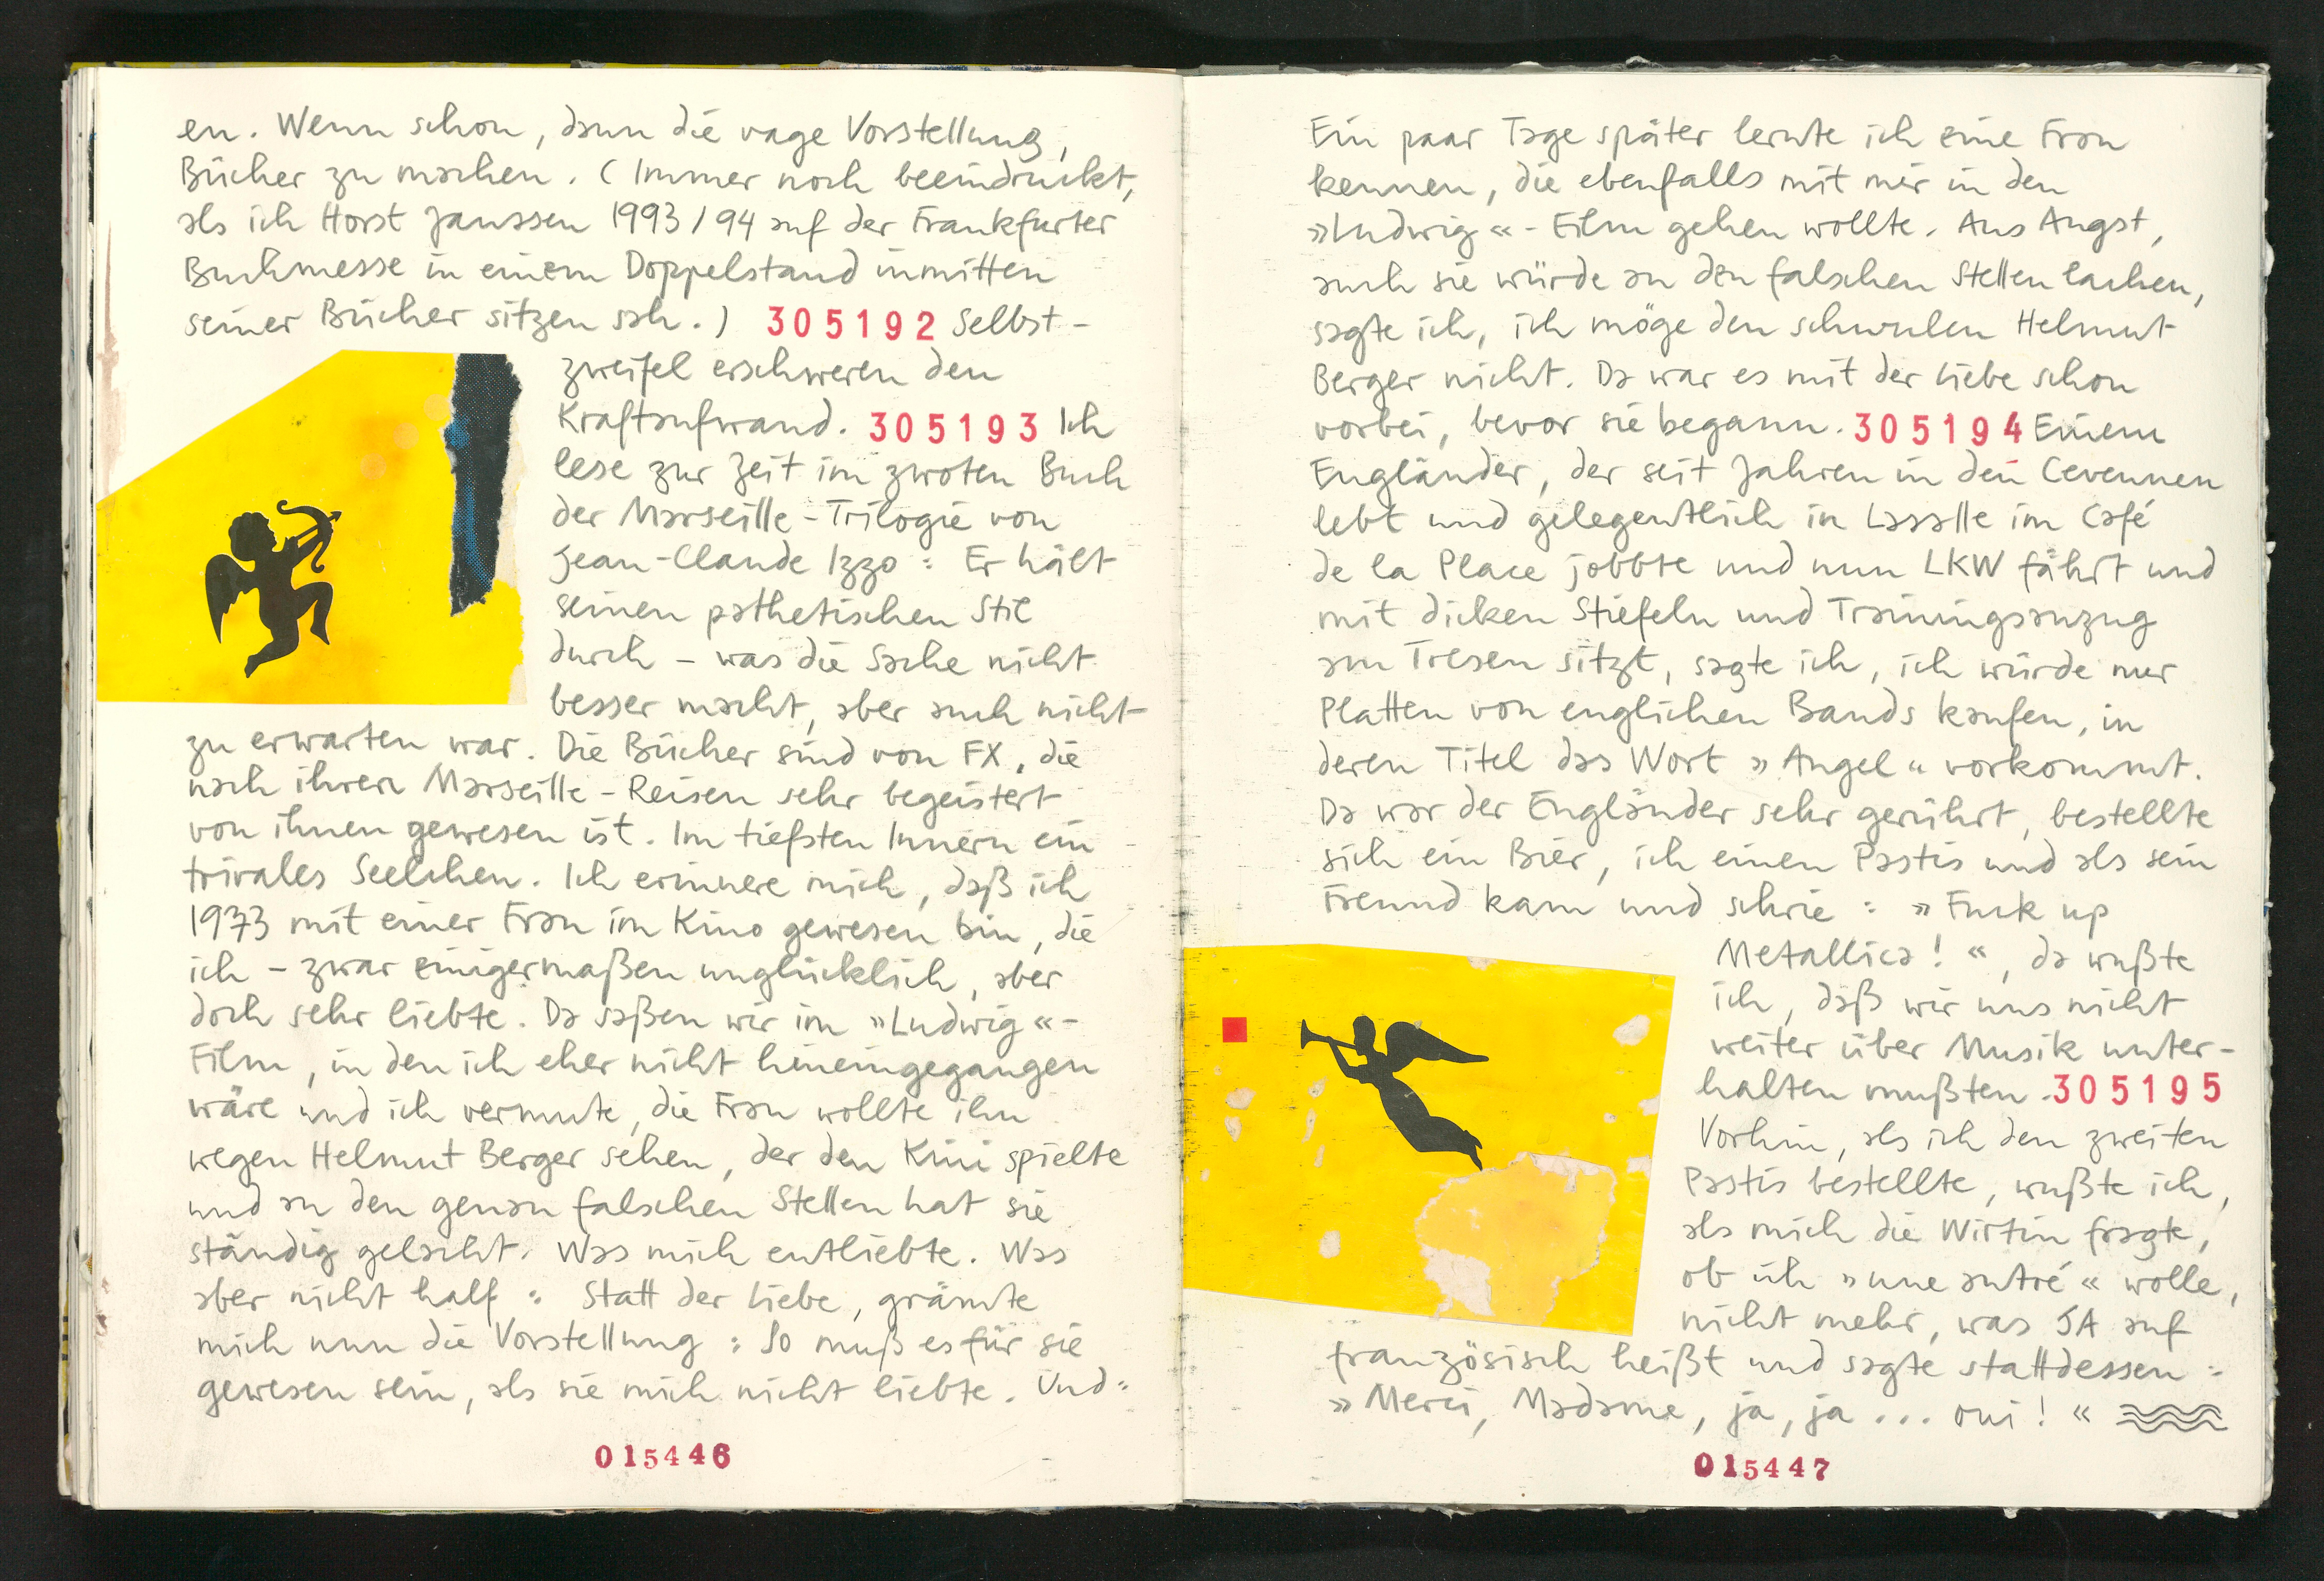 en. Wenn schon, dann die vage Vorstellung,
Bücher zu machen. (Immer noch beeindruckt,
als ich Horst Janssen 1993/94 auf der Frankfurter
Buchmesse in einem Doppelstand inmitten
seiner Bücher sitzen sah.) 305192 Selbst-
zweifel erschweren den
Kraftaufwand. 305193 Ich
lese zur Zeit im zwoten Buch
der Marseille-Trilogie von
Jean-Claude Izzo: Er hält
seinen pathetischen Stil
durch - was die Sache nicht
besser macht, aber auch nicht
zu erwarten war. Die Bücher sind von FX, die
nach ihren Marseille-Reisen sehr begeistert
von ihnen gewesen ist. Im tiefsten Innern ein
trivales Seelchen. Ich erinnere mich, daß ich
1973 mit einer Frau im Kino gewesen bin, die
ich - zwar einigermaßen unglücklich, aber
doch sehr liebte. Da saßen wir im »Ludwig«-
Film, in den ich eher nicht hineingegangen
wäre und ich vermute, die Frau wollte ihn
wegen Helmut Berger sehen, der den Kini spielte
und an den genau falschen Stellen hat sie
ständig gelacht. Was mich entliebte. Was
aber nicht half: Statt der Liebe, grämte
mich nun die Vorstellung: So muß es für sie
gewesen sein, als sie mich nicht liebte. Und:
015446
Ein paar Tage später lernte ich eine Frau
kennen, die ebenfalls mit mir in den
»Ludwig«-Film gehen wollte. Aus Angst,
auch sie würde an den falschen Stellen lachen,
sagte ich, ich möge den schwulen Helmut
Berger nicht. Da war es mit der Liebe schon
vorbei, bevor sie begann. 305194 Einem
Engländer, der seit Jahren in den Cevennen
lebt und gelegentlich in Lasalle im Café
de la Place jobbte und nun LKW fährt und
mit dicken Stiefeln und Trainingsanzug
am Tresen sitzt, sagte ich, ich würde nur
Platten von englichen Bands kaufen, in
deren Titel das Wort »Angel« vorkommt.
Da war der Engländer sehr gerührt, bestellte
sich ein Bier, ich einen Pastis und als sein
Freund kam und schrie: »Fuck up
Metallica!«, da wußte
ich, daß wir uns nicht
weiter über Musik unter-
halten mußten. 305195
Vorhin, als ich den zweiten
Pastis bestellte, wußte ich,
als mich die Wirtin fragte,
ob ich »une autré« wolle,
nicht mehr, was JA auf
französisch heißt und sagte stattdessen:
»Merci, Madame, ja, ja... oui!«
015447